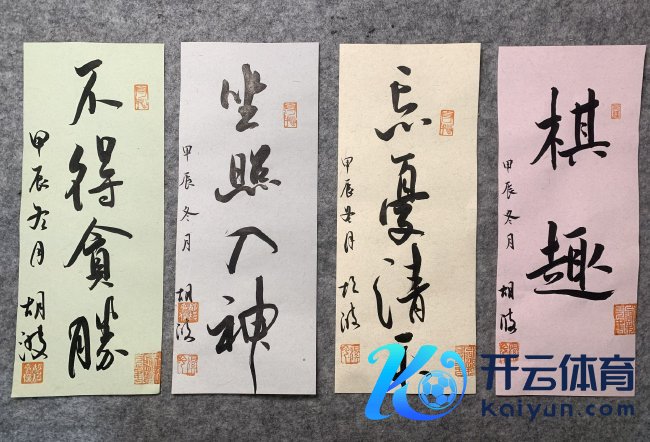 不得貪勝
甲辰冬月
胡波
坐照入神
甲辰冬月
胡波
忘憂清乐
甲辰冬月
胡波
棋趣
甲辰冬月
胡波
开云体育
kaiyun.com